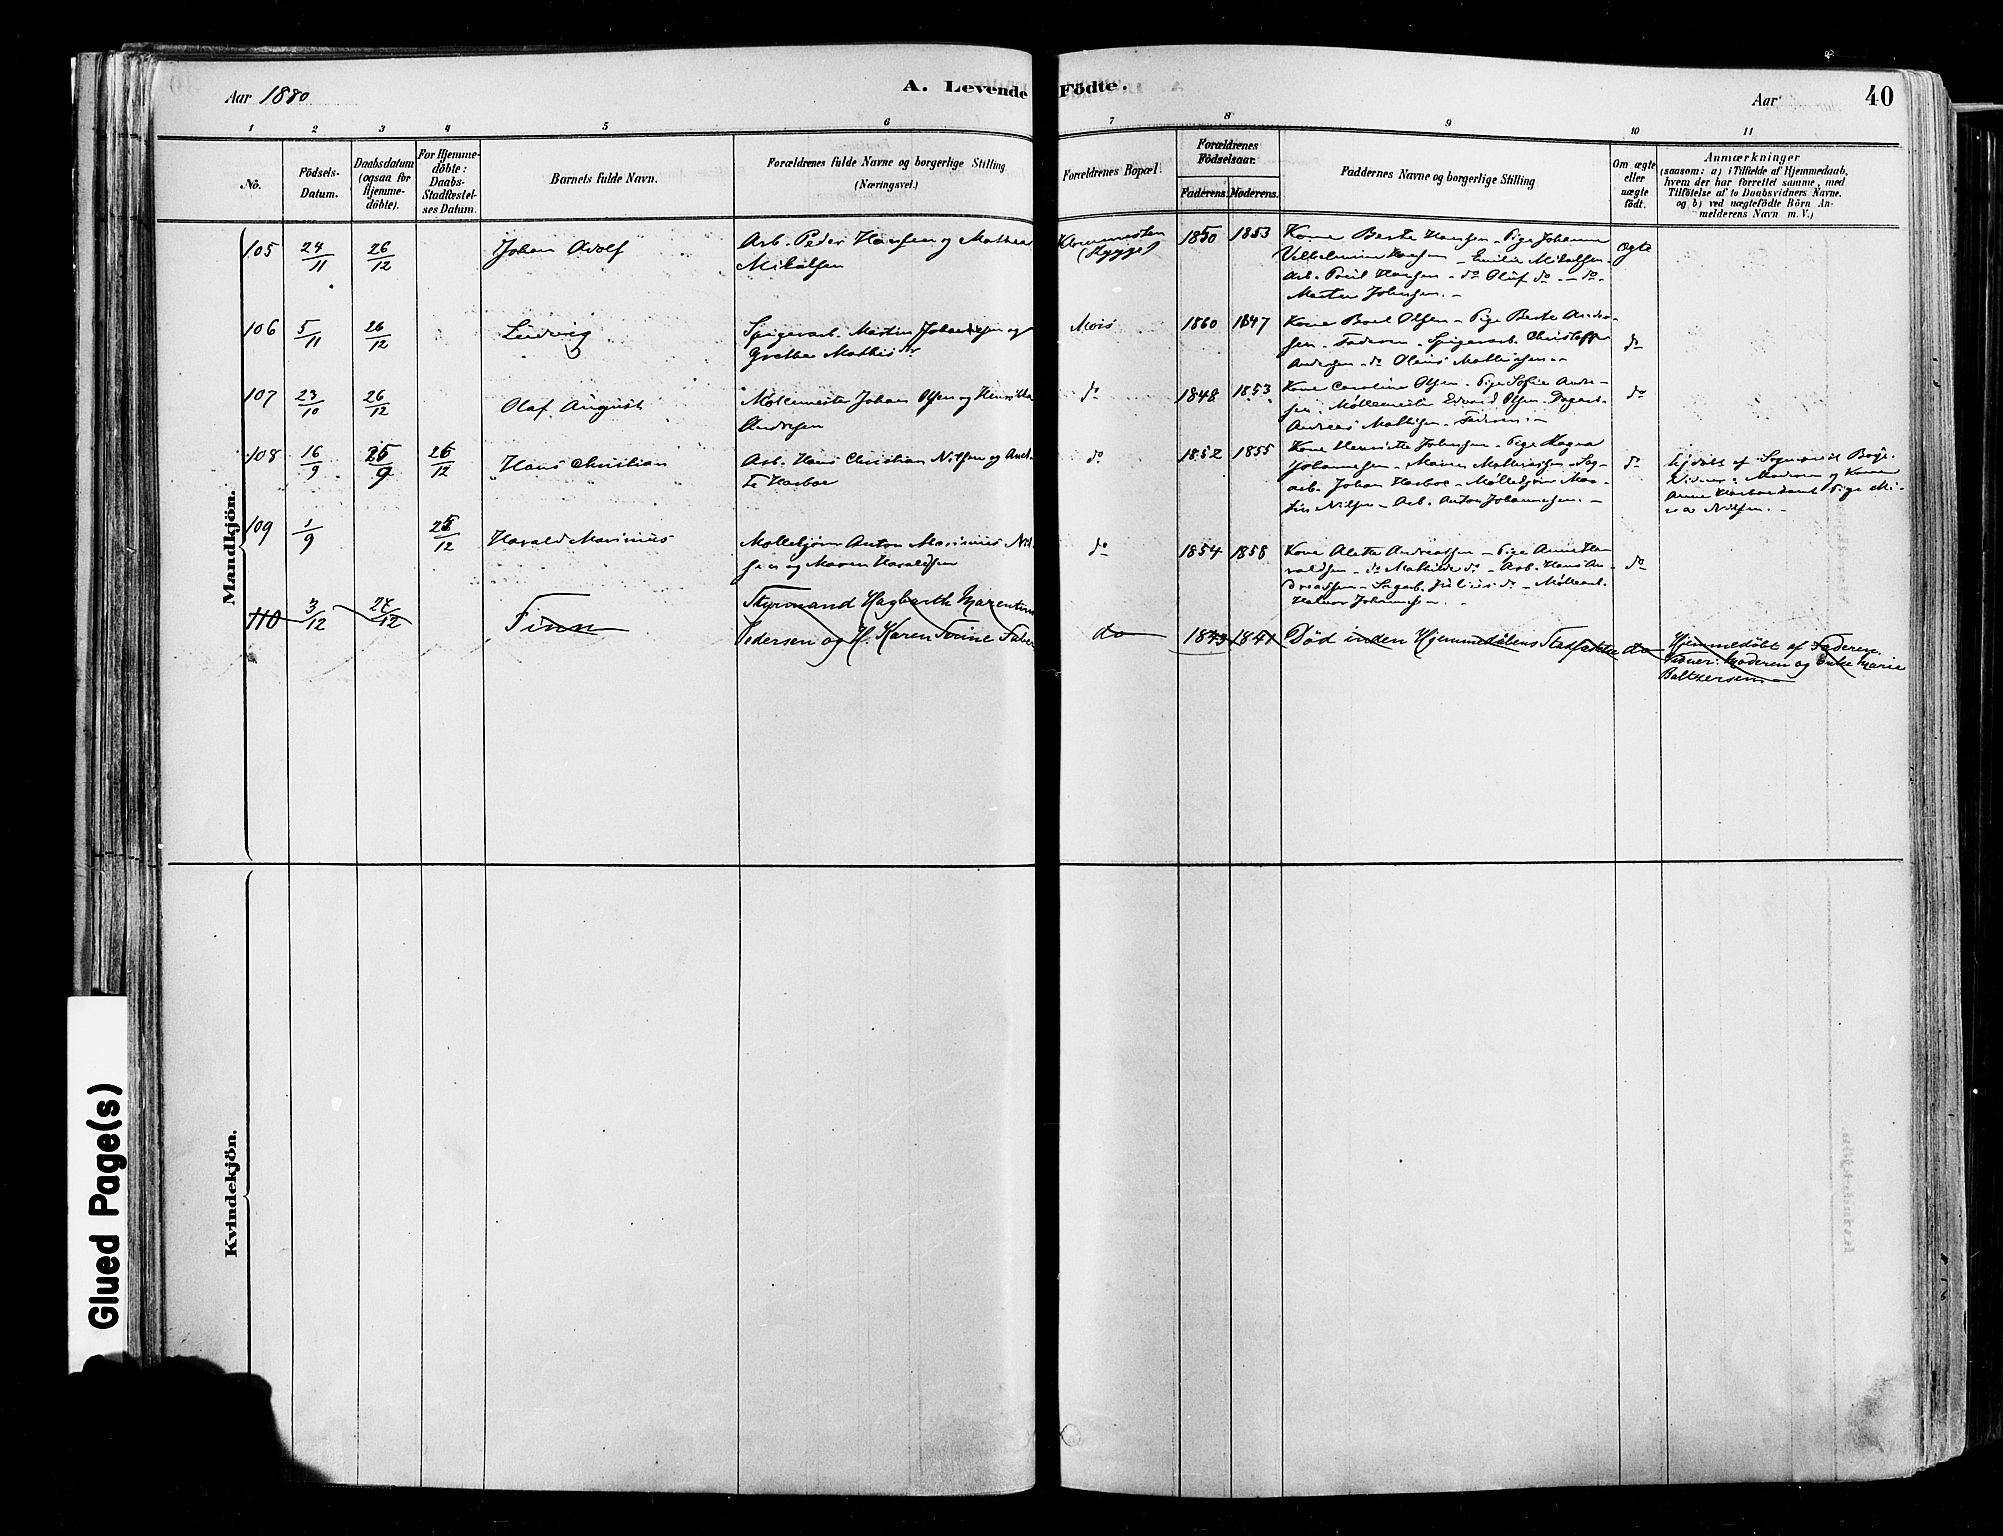 Aar 1880
A. Levende Fødte.
Aar
40
1 2 3 4 5 6 7 8 9 10 11
No.
Födsels-
Datum.
Daabsdatum
(ogsaa for
Hjemme-
döbte).
For Hjemme-
döbte:
Daabs-
Stadfæstel-
ses Datum.
Barnets fulde Navn.
Forældrenes fulde Navne og borgerlige Stilling
(Næringsvei.)
Forældrenes Bopæl.
Forældrenes
Födselsaar.
Faderens. Moderens.
Faddernes Navne og borgerlige Stilling
Om ægte
eller
uægte
födt.
Anmærkninger
(saasom: a) i Tilfælde af Hjemmedaab,
hvem der har forrettet samme, med
Tilföielse af to Daabsvidners Navne.
og b) ved uægtefödte Börn An-
melderens Navn m. V.)
Mandkjön.
105 24/11 26/12 Johan Adolf
Arb. Peder Hansen og Mathea
Mikalsen
1850 1853
Kone Berte Hansen - Pige Johanne
Vilhelmine Hansen - Emilie Mikalsen -
Arb. Poul Hansen - do Oluf do - do
Martin Johnsen. -
Ægte
106 5/11 26/12 Ludvig
Spigerarb. Martin Johannesen og
Grethe Mathisdr
Mois
1860 1847
Kone Boel Olsen - Pige Berte Andre-
sen - Faderen - Spigerarb. Christoffer
Andersen - do Olaus Mathisen. -
do
107 23/10 26/12 Olaf August
Møllemester Johan Olsen og Henrikke
Andresen
do
1848 1853
Kone Caroline Olsen - Pige Sofie Andre-
sen - Møllemester Edvard Olsen - Dagarb.
Andreas Mathisen - Faderen. -
do
108 16/9 25/9 26/12 Hans Christian
Arb. Hans Christian Nilsen og Anet-
te Harboe
do
1852 1855
Kone Henriette Johnsen - Pige Hagna
Johannesen - Maren Mathiesen - Sag-
arb. Johan Harboe - Møllesjour Mar-
tin Nilsen - Arb. Anton Johannesen. -
do
Hjdøbt af Sognepræst
Vidner: Moderen og Kone
Anne Harboe samt Pige Mi-
na Nilsen. -
109 1/9 26/12 Harald Marinius
Møllesjour Anton Marinius Nil-
sen og Maren Haraldsen
do
1854 1858
Kone Alette Andreassen - Pige Anne Ha-
raldsen - do Mathilde do - Arb. Hans An-
dreassen - Sagarb. Julius do - Møllearb.
Halvor Johannesen. -
do
110 3/12 27/12 Finn
Styrmand Hagbarth Marentius
Pedersen og H. Karen Torine Faber
do
1849 1847
Død inden Hjemmedåbens Stadfæstelse
do
Hjemmedøbt af Faderen.
Vidner: Moderen og Enke Marie
Baltzersen. -
Kvindekjön.
Glued Page(s)